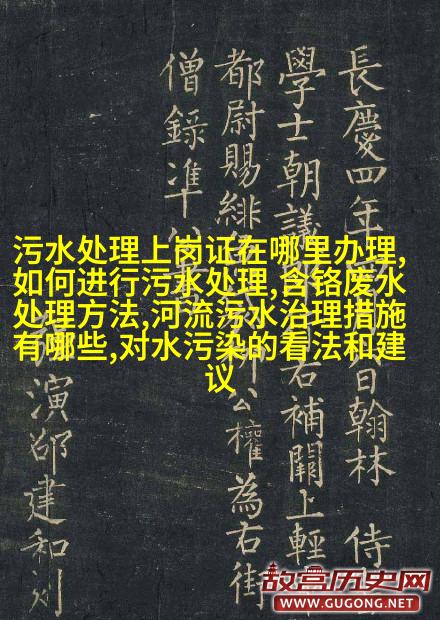 污水处理上岗证在哪里办理,
如何进行污水处理,含铬废水
处理方法,河流污水治理措施
有哪些,对水污染的看法和建
议
長慶四年 日翰林 侍
學士朝議 右補闕上輕
都尉賜緋 公權為右街
僧錄准
演邵建和刻
故宫历史网
WWW.GUGONG.NET